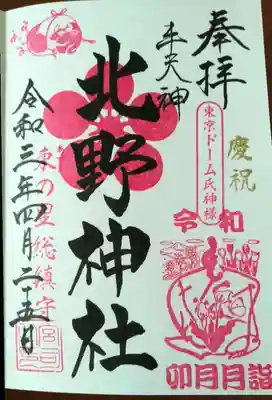 奉拝
牛天神
慶祝
東京ドーム氏神様
北野神社
令和
卯月月詣
東の宮総鎮守
令和三年四月二十五日